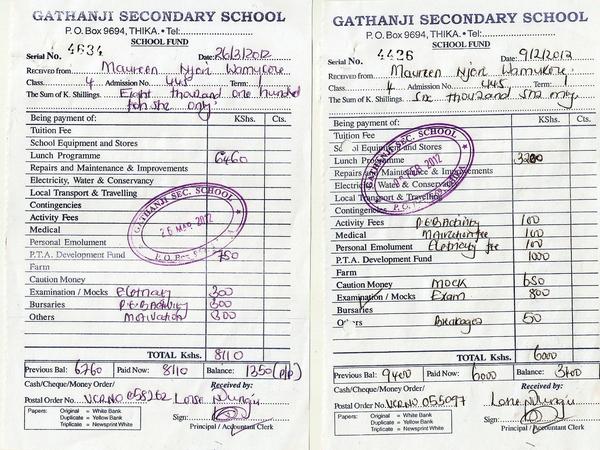 GATHANJI SECONDARY SCHOOL
P. O. Box 9694, THIKA. • Tel:
SCHOOL FUND
Serial No. 4634 Date: 26/3/2012
Received from Maureen Njeri Wamukore
Class 4 Admission No. 445 Term: 1
The Sum of K. Shillings. Eight thousand one hundred
ten shs only
Being payment of: KShs. Cts.
Tuition Fee
School Equipment and Stores
Lunch Programme 6460
Repairs and Maintenance & Improvements
Electricity, Water & Conservancy
Local Transport & Travelling
Contingencies
Activity Fees
Medical
Personal Emolument
P.T.A. Development Fund 750
Farm
Caution Money
Examination / Mocks Eletricity 300
Bursaries P.E.B Activity 300
Others Motivation 300
TOTAL Kshs. 8110
Previous Bal: 6760 Paid Now: 8110 Balance: 1350 (P/P)
Cash/Cheque/Money Order/ Received by:
Postal Order No. VCR NO 058262
Papers: Original = White Bank
Duplicate = Yellow Bank
Triplicate = Newsprint White
Sign:
Principal / Accountant Clerk
GATHANJI SEC. SCHOOL
26 MAR 2012
P. O. Box
GATHANJI SECONDARY SCHOOL
P. O. Box 9694, THIKA. • Tel:
SCHOOL FUND
Serial No. 4426 Date: 9/2/2012
Received from Maureen Njeri Wamukore
Class 4 Admission No. 445 Term: 1
The Sum of K. Shillings Six thousand shs only
Being payment of: KShs. Cts.
Tuition Fee
School Equipment and Stores
Lunch Programme 3200
Repairs and Maintenance & Improvements
Electricity, Water & Conservancy
Local Transport & Travelling
Contingencies
Activity Fees P.E.B Activity 100
Medical Motivation fee 100
Personal Emolument Eletricity fee 100
P.T.A. Development Fund 1000
Farm
Caution Money Mock 650
Examination / Mocks Exam 800
Bursaries
Others Breakages 50
TOTAL Kshs. 6000
Previous Bal: 9400 Paid Now: 6000 Balance: 3400
Cash/Cheque/Money Order/ Received by:
Postal Order No. VCR NO 055097
Papers: Original = White Bank
Duplicate = Yellow Bank
Triplicate = Newsprint White
Sign:
Principal / Accountant Clerk
GATHANJI SEC. SCHOOL
FEB 2012
P. O. Box